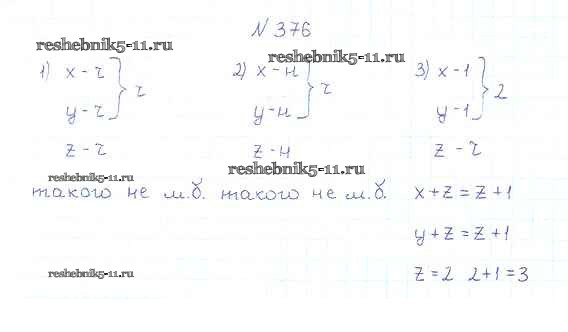 N 376
reshebnik5-11.ru
reshebnik5-11.ru
1) x - ч } ч
y - ч
z - ч
такого не м.б.
2) x - н } ч
y - н
z - н
такого не м.б.
3) x - 1 } 2
y - 1
z - ч
x + z = z + 1
y + z = z + 1
z = 2 2 + 1 = 3
reshebnik5-11.ru
reshebnik5-11.ru
reshebnik5-11.ru